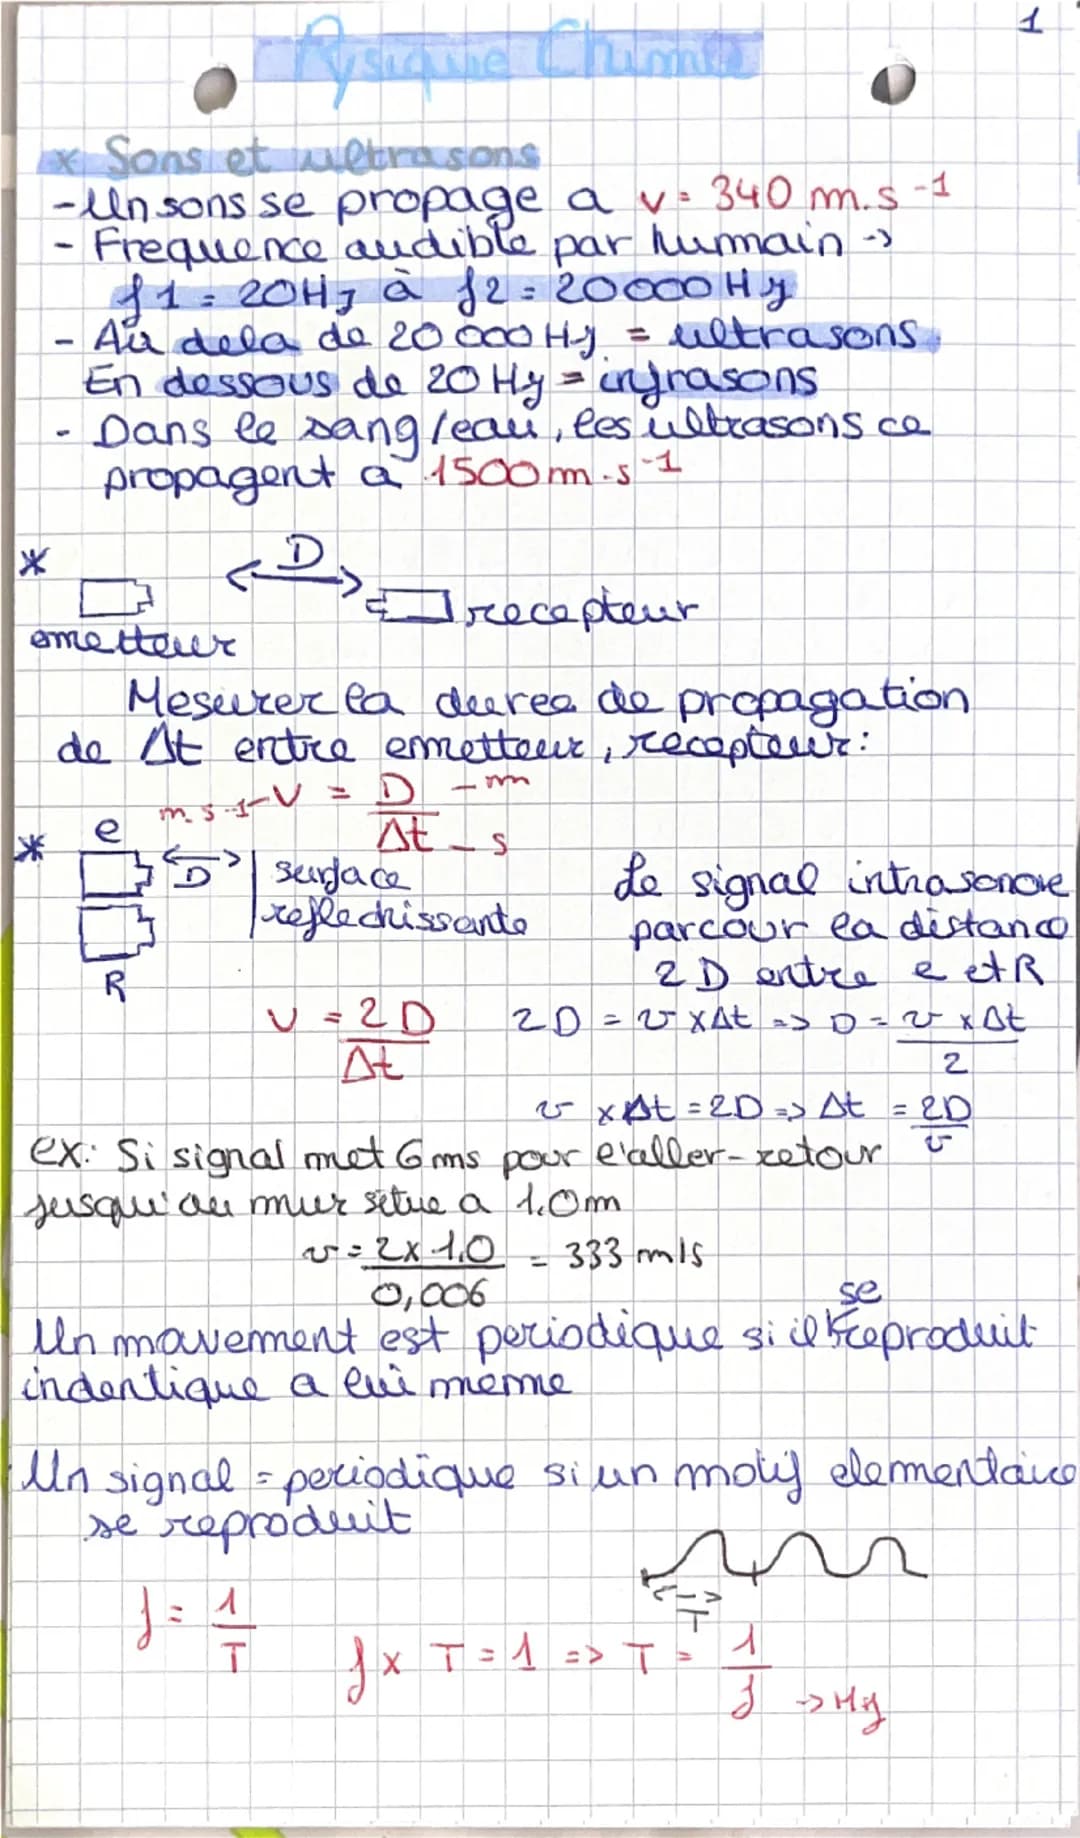 1
Pysique Chimie
x Sons et ultrasons
- Un sons se propage a v = 340 m.s -1
- Frequence audible par humain ->
f1 = 20Hz à f2 = 20000 Hz
- Au dela de 20 000 Hz = ultrasons.
En dessous de 20 Hz = infrasons
- Dans le sang/eau, les ultrasons ce
propagent a 1500 m.s -1
* <-D->
recepteur
emetteur
Mesurer la duree de propagation
de Δt entre emetteur, recepteur:
m.s-1 - V = D/Δt - m - s
* e
<-D-> surface
reflechissante
R
Le signal intrasonore
parcour la distance
2D entre e et R
V = 2D/Δt 2D = v x Δt => D = v x Δt/2
v x Δt = 2D => Δt = 2D/v
ex: Si signal met 6 ms pour l'aller-retour
jusqu'au mur situe a 1.0m
v = 2 x 1,0/0,006 = 333 m/s
Un mavement est periodique si il se reproduit
indentique a lui meme
Un signal = periodique si un motif elementaire
se reproduit
<-->
T
f = 1/T
f x T = 1 => T = 1/f -> Hz